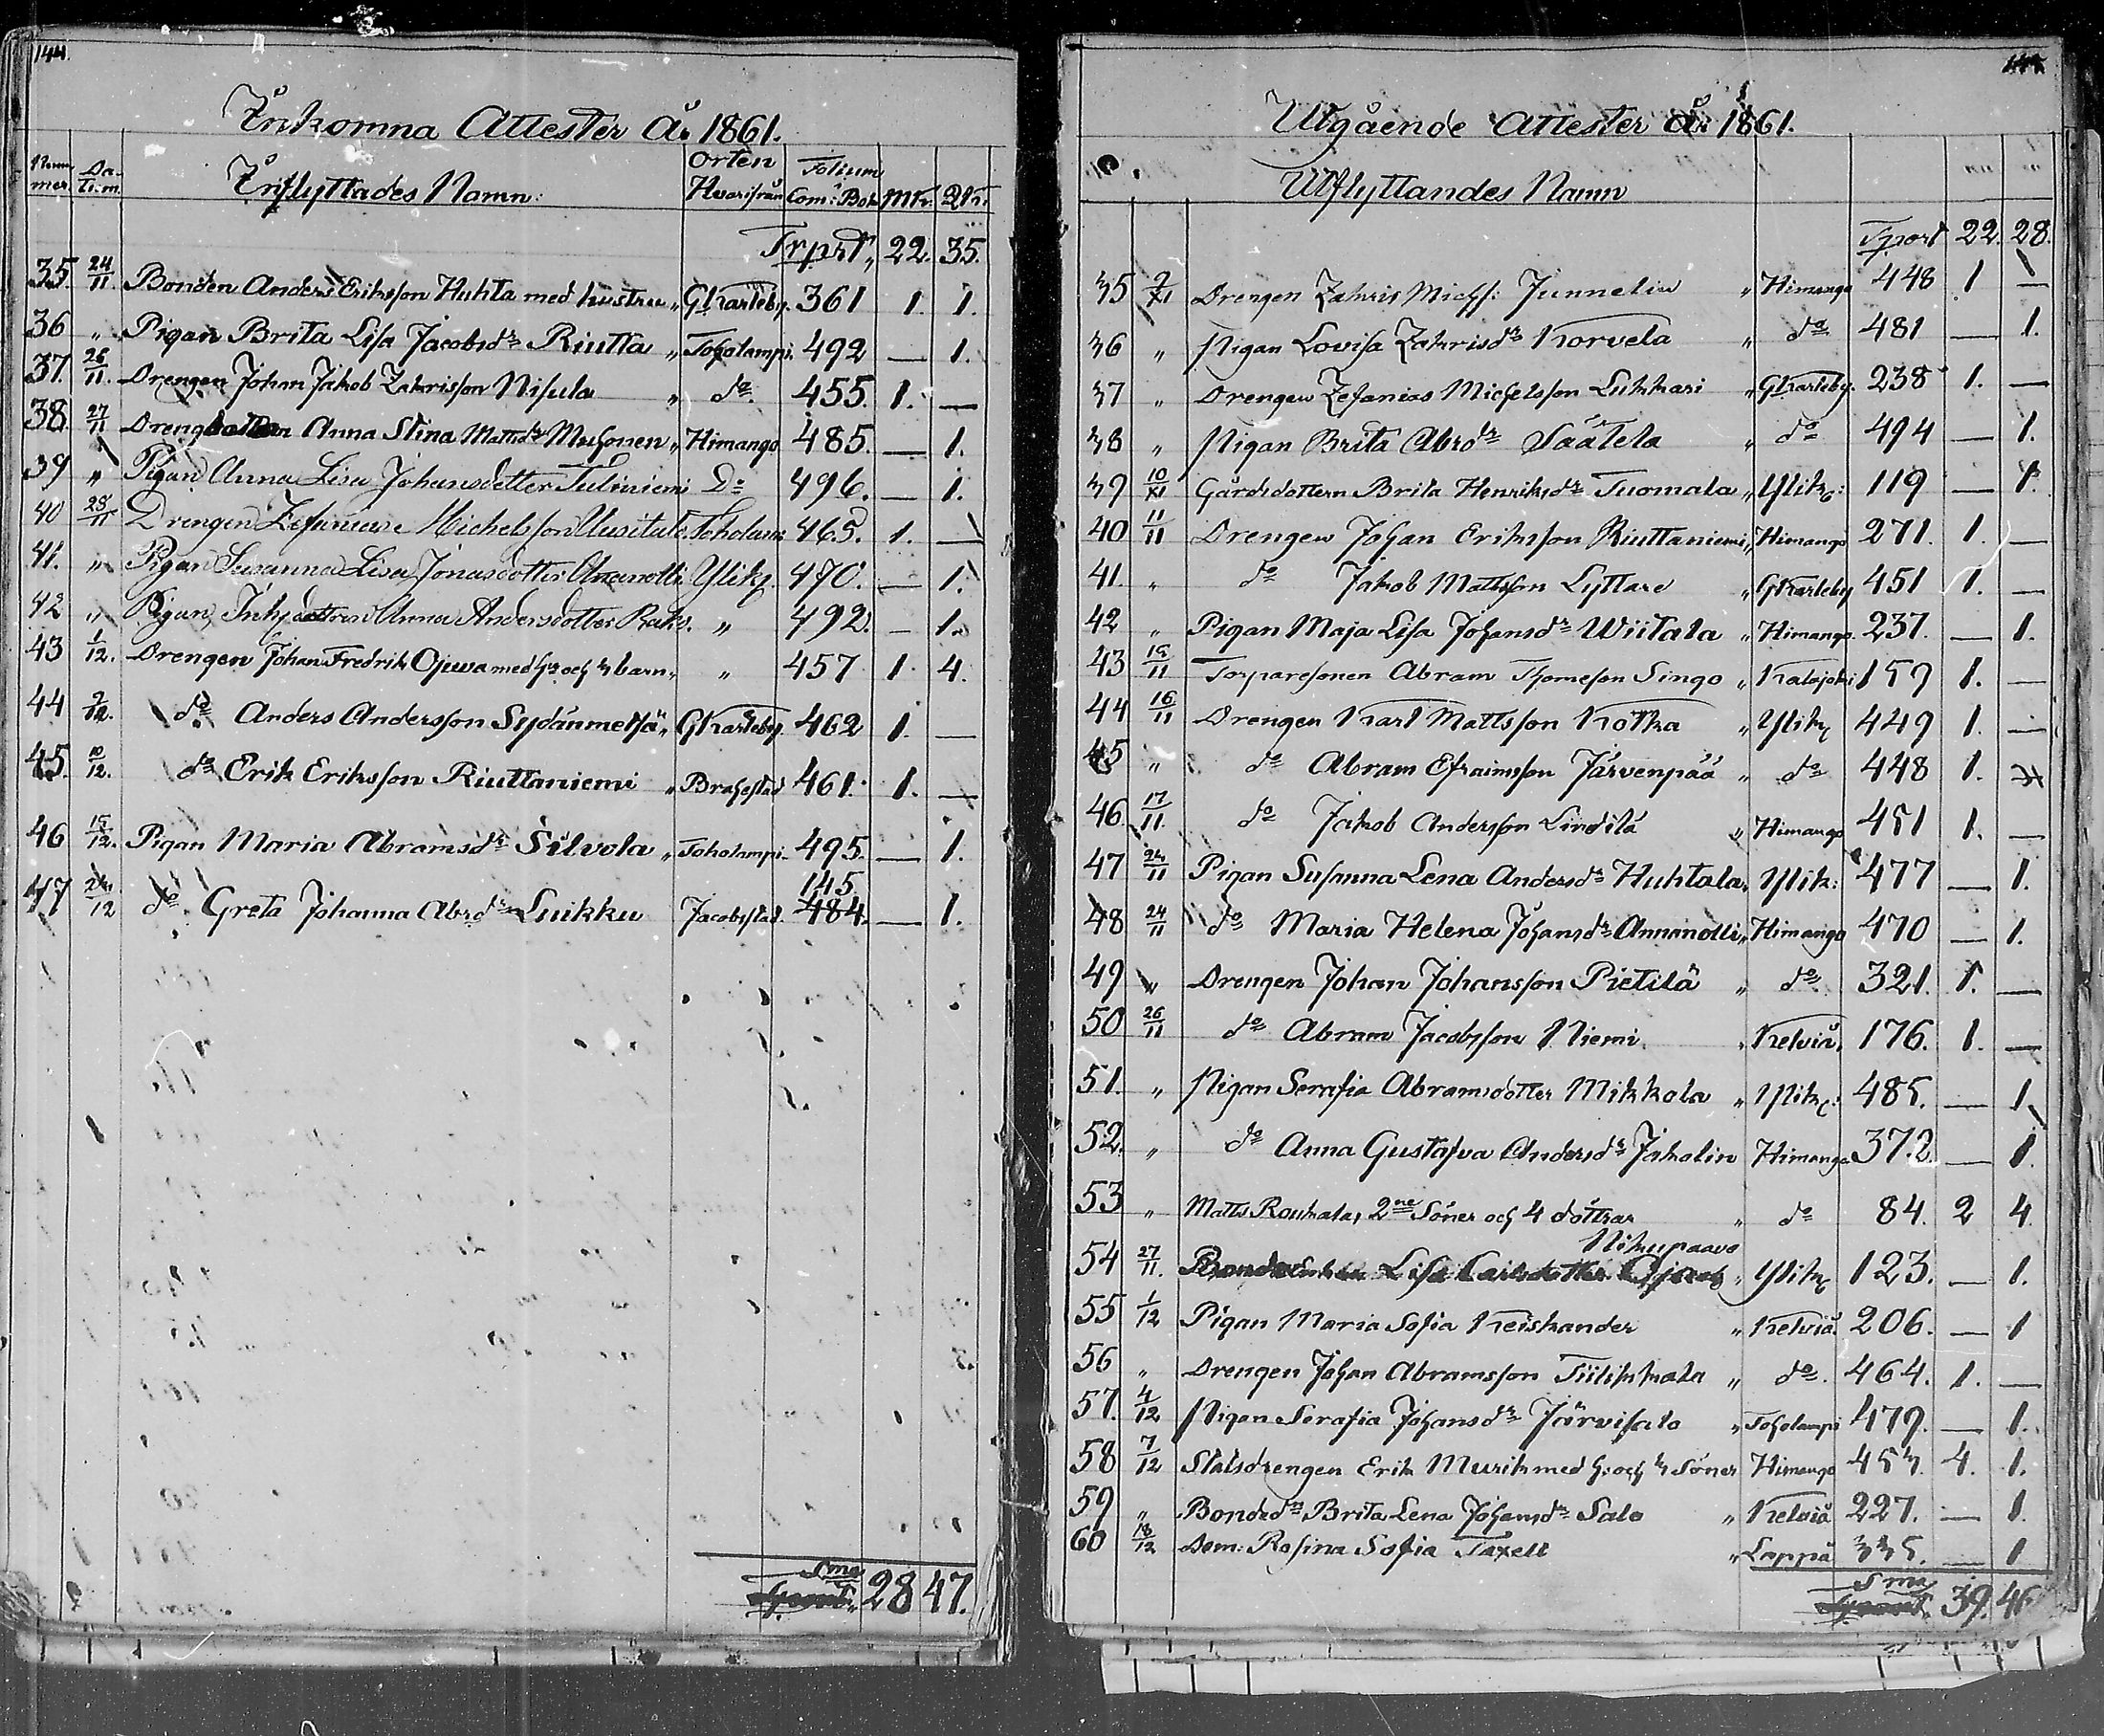 144.
Inkomna Attester År 1861.
Num̄mer Datum Inflyttades Namn: Orten Hvarifrån Folium Com: Bok Mk. Qk.
Trprt „ 22. 35.
35. 24/11 Bonden Anders Eriksson Huhta med hustru „ GKarleby. 361 1. 1.
36 „ Pigan Brita Lisa Jacobsdr Riutta „ Toholampi. 492 — 1.
37. 26/11. Drengen Johan Jakob Zakrisson Nisula „ do. 455. 1. —
38. 27/11 Anna Stina Mattsdr Muhonen „ Himango 485. — 1.
39 „ Pigan Anna Lisa Johansdotter Tuliniemi Do 496. — 1.
40 28/11 Drengen Zefanias Michelsson Uusitalo. Toholam: 465. 1. —
41. „ Pigan Susanna Lisa Jonasdotter Ylikg. 470. — 1.
42 „ Pigan, Anna Andersdotter „ 492. — 1.
43 1/12. Drengen Johan Fredrik Ojuwa med h: och 3 barn. „ 457 1. 4.
44 9/12. do Anders Andersson Sydänmetsä „ GKarleby. 462 1. —
45. 10/12. do Erik Eriksson Riuttaniemi „ Brahestad 461. 1. —
46 15/12. Pigan Maria Abramsdr Silvola „ Toholampi. 495. — 1.
145.
47 24/12 do Greta Johanna Abrdr Luikku Jacobstad. 484. — 1.
Sma 28 47.
Utgående Attester År 1861.
Utflyttandes Namn
Tport 22. 28.
35 9/XI Drengen Zakris Michss: Junnelin „ Himango 448 1 —
36 „ Pigan Lovisa Zakrisdr Korvela „ do 481 — 1.
37 „ Drengen Zefanias Michelsson Lukkari „ GKarleby. 238 1. —
38 „ Pigan Brita Abrdr Säätelä „ do 494 — 1.
39 10/XI Gårdsdottern Brita Henriksdr Tuomala „ Ylikg: 119 — 1.
40 11/11 Drengen Johan Eriksson Riuttaniemi „ Himango 271. 1. —
41. „ do Jakob Mattsson Lyttare „ GKarleby 451 1. —
42 „ Pigan Maja Lisa Johansdr Wiitala „ Himango. 237. — 1.
43 15/11 Torparesonen Abram Thomeson Singo „ Kalajoki 159 1. —
44 16/11 Drengen Karl Mattsson Kotka „ Ylikg 449 1. —
45 „ do Abram Efraimsson Järvenpää „ do 448 1. —
46. 17/11. do Jakob Andersson Lindilä „ Himango 451 1. —
47 24/11 Pigan Susanna Lena Andersdr Huhtala „ Ylik: 477 — 1.
48 24/11 do Maria Helena Johansdr Annanolli „ Himango 470 — 1.
49 „ Drengen Johan Johansson Pietilä „ do. 321. 1. —
50 26/11 do Abram Jacobsson Niemi „ Kelviå, 176. 1. —
51. „ Pigan Serafia Abramsdotter Mikkola „ Ylikg: 485. — 1
52. „ do Anna Gustafva Andersdr Jakolin Himango 372. — 1.
53 „ Matts Roukala, 2ne Söner och 4 döttrar „ do 84. 2 4.
Nikupaavo
54 27/11. Lisa Carlsdotter „ Ylikg 123. — 1.
55 1/12 Pigan Maria Sofia Keiskander „ Kelviå. 206. — 1
56 „ Drengen Johan Abramsson Tiilikkala „ do. 464. 1. —
57. 4/12 Pigan Serafia Johansdr Järvisalo „ Toholampi 479. — 1.
58 7/12 Statsdrengen Erik Murik med h: och 3 Söner Himango 453. 4. 1.
59 „ Bondedr Brita Lena Johansdr Salo „ Kelviå 227. — 1.
60 18/12 Dem: Rosina Sofia Taxell „ Lappå 335. — 1
Sma 39. 46.